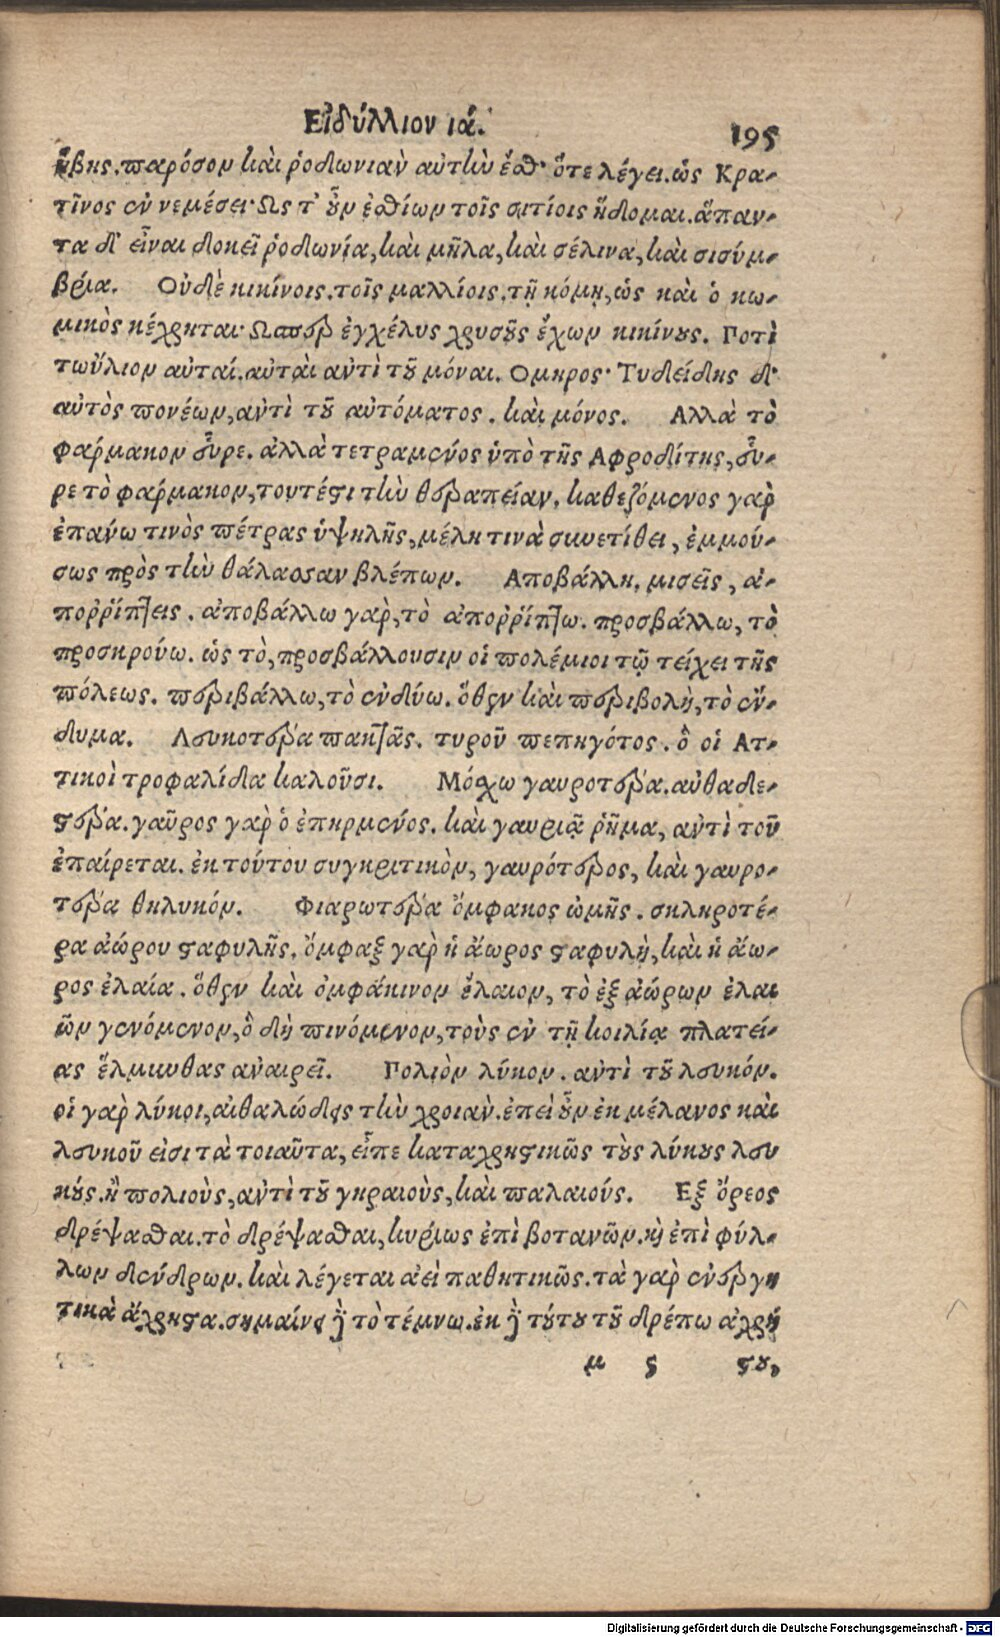 Εἰδύλλιον ιά.
195
ἥβης. παρόσον καὶ ῥοδωνιὰν αὐτὴν ἔσθ' ὅτε λέγει. ὡς Κρα-
τῖνος ἐν νεμέσει· Ως τ' οὖν ἐσθίων τοῖς σιτίοις ἥδομαι. ἅπαν-
τα δ' εἶναι δοκεῖ ῥοδωνία, καὶ μῆλα, καὶ σέλινα, καὶ σισύμ-
βρια. Οὐδὲ κικίνοις. τοῖς μαλλίοις. τῇ κόμῃ, ὡς καὶ ὁ κω-
μικὸς κέχρηται· Ωσπερ ἐγχέλυς χρυσοῦς ἔχων κικίνους. Ποτὶ
τωὔλιον αὐταί. αὐταὶ αντὶ τοῦ μόναι. Ομηρος· Τυδείδης δ'
αὐτὸς πονέων, αντὶ τοῦ αὐτόματος. καὶ μόνος. Αλλὰ τὸ
φάρμακον εὗρε. ἀλλὰ τετραμένος ὑπὸ τῆς Αφροδίτης, εὗ-
ρε τὸ φάρμακον, τουτέστι τὴν θεραπείαν. καθεζόμενος γὰρ
ἐπάνω τινὸς πέτρας ὑψηλῆς, μέλη τινὰ συνετίθει, ἐμμού-
σως πρὸς τὴν θάλασσαν βλέπων. Αποβάλλη. μισεῖς, ἀ-
πορρίπτεις. ἀποβάλλω γὰρ, τὸ ἀπορρίπτω. προσβάλλω, τὸ
προσκρούω. ὡς τὸ, προσβάλλουσιν οἱ πολέμιοι τῷ τείχει τῆς
πόλεως. περιβάλλω, τὸ ἐνδύω. ὅθεν καὶ περιβολὴ, τὸ ἔν-
δυμα. Λευκοτέρα πακτᾶς. τυροῦ πεπηγότος. ὃ οἱ Ατ-
τικοὶ τροφαλίδα καλοῦσι. Μόσχω γαυροτέρα. αὐθαδε-
στέρα. γαῦρος γὰρ ὁ ἐπηρμένος. καὶ γαυριᾷ ῥῆμα, αντὶ τοῦ
ἐπαίρεται. ἐκ τούτου συγκριτικὸν, γαυρότερος, καὶ γαυρο-
τέρα θηλυκόν. Φιαρωτέρα ὄμφακος ὠμῆς. σκληροτέ-
ρα ἀώρου σταφυλῆς. ὄμφαξ γὰρ ἡ ἄωρος σταφυλὴ, καὶ ἡ ἄω-
ρος ἐλαία. ὅθεν καὶ ὀμφάκινον ἔλαιον, τὸ ἐξ ἀώρων ἐλαι
ῶν γενόμενον, ὃ δὴ πινόμενον, τοὺς ἐν τῇ κοιλίᾳ πλατεί-
ας ἕλμινθας αναιρεῖ. Πολιὸν λύκον. αντὶ τοῦ λευκόν.
οἱ γὰρ λύκοι, αἰθαλώδεις τὴν χροιάν. ἐπεὶ οὖν ἐκ μέλανος καὶ
λευκοῦ εἰσι τὰ τοιαῦτα, εἶπε καταχρηστικῶς τοὺς λύκους λευ
κούς. ἢ πολιοὺς, αντὶ τοῦ γηραιοὺς, καὶ παλαιούς. Εξ ὄρεος
δρέψασθαι. τὸ δρέψασθαι, κυρίως ἐπὶ βοτανῶν. καὶ ἐπὶ φύλ-
λων δένδρων. καὶ λέγεται ἀεὶ παθητικῶς. τὰ γὰρ ἐνεργη
τικὰ ἄχρηστα. σημαίνει δὲ τὸ τέμνω. ἐκ δὲ τούτου τοῦ δρέπω ἀχρή
μ 5 στου,
Digitalisierung gefördert durch die Deutsche Forschungsgemeinschaft - DFG